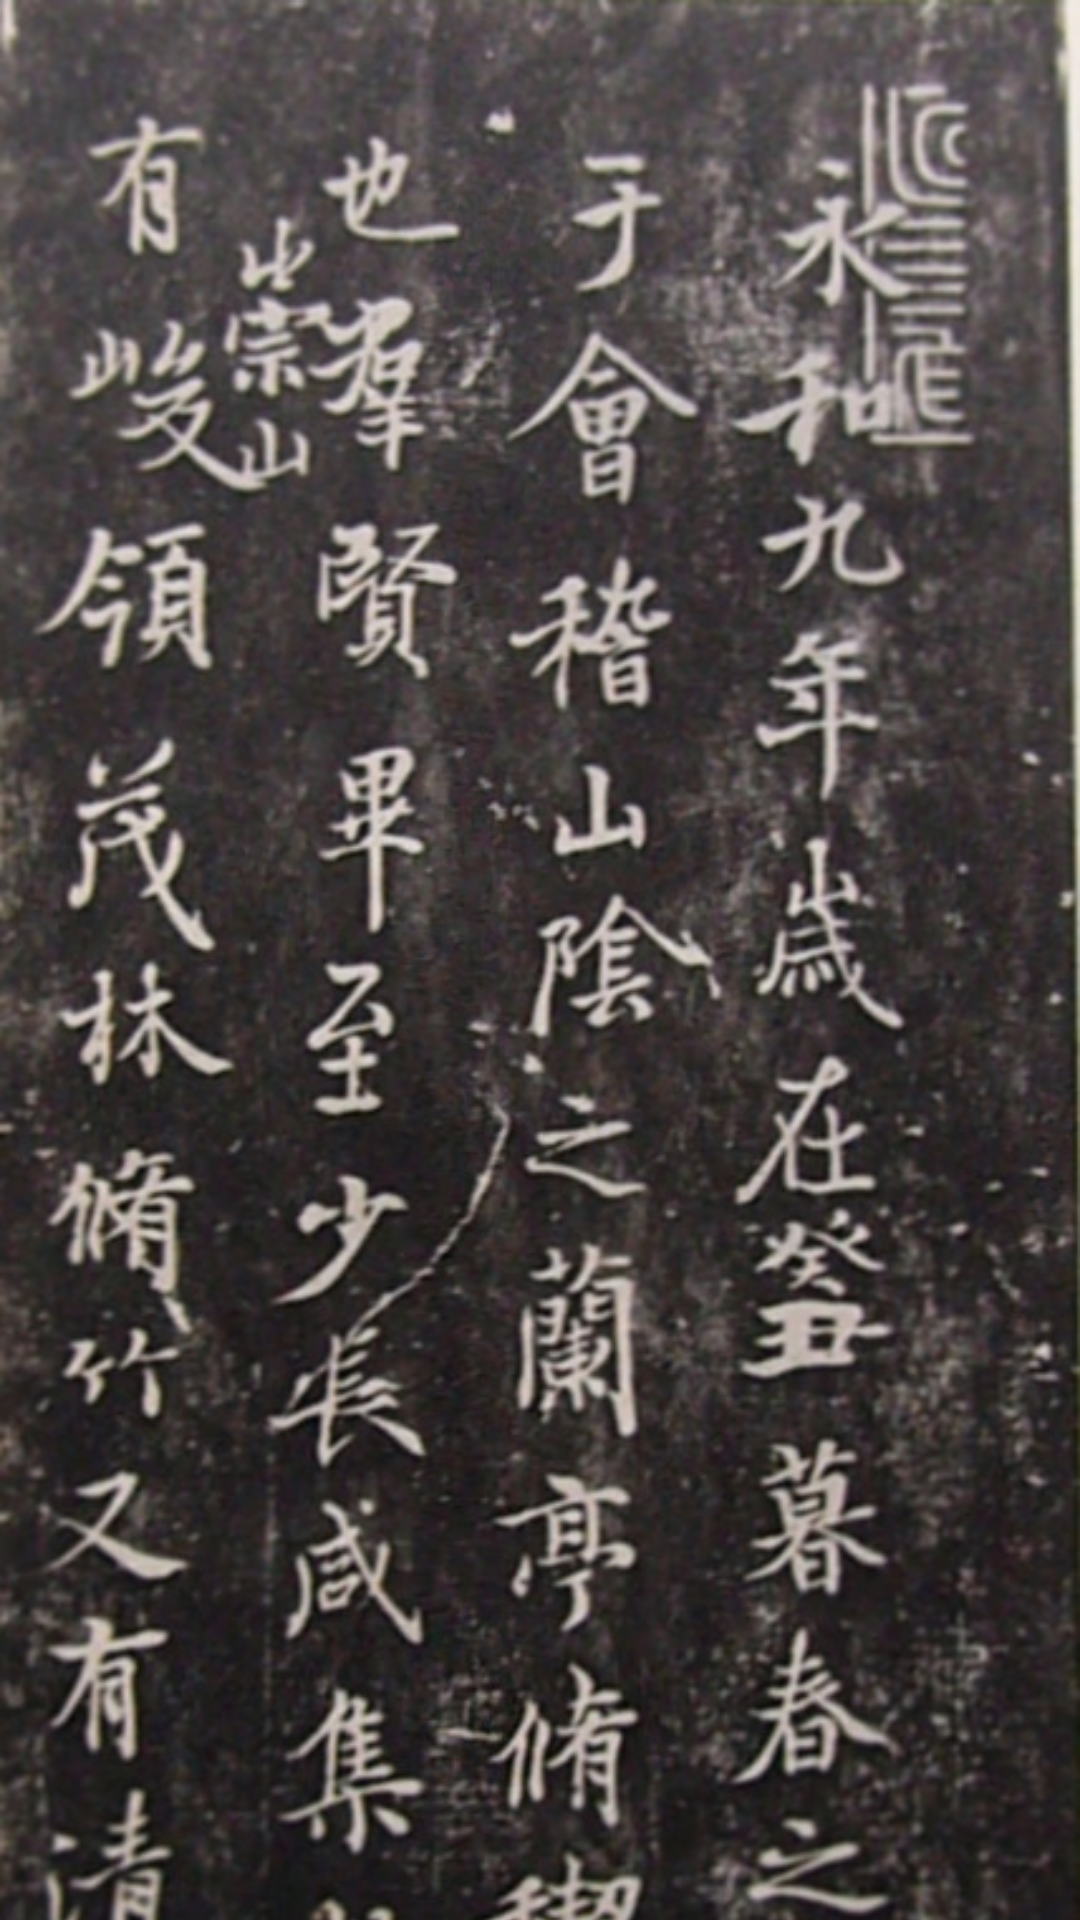 永和九年歲在癸丑暮春之
于會稽山陰之蘭亭脩禊
也羣賢畢至少長咸集
崇山
有峻領茂林脩竹又有清